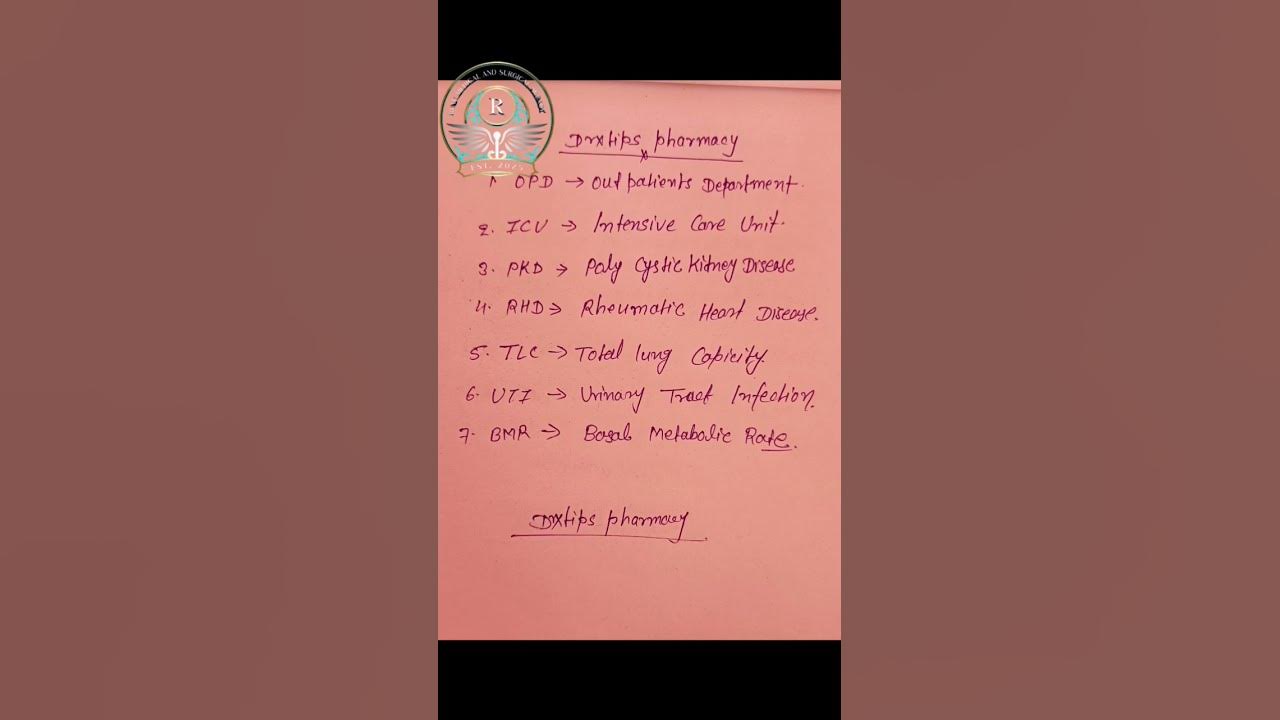 R
EST. 2025
Drxtips pharmacy
1. OPD → Outpatients Department.
2. ICU → Intensive Care Unit.
3. PKD → Poly Cystic Kidney Disease
4. RHD → Rheumatic Heart Disease.
5. TLC → Total lung Capicity.
6. UTI → Urinary Tract Infection.
7. BMR → Basal Metabolic Rate.
Drxtips pharmacy